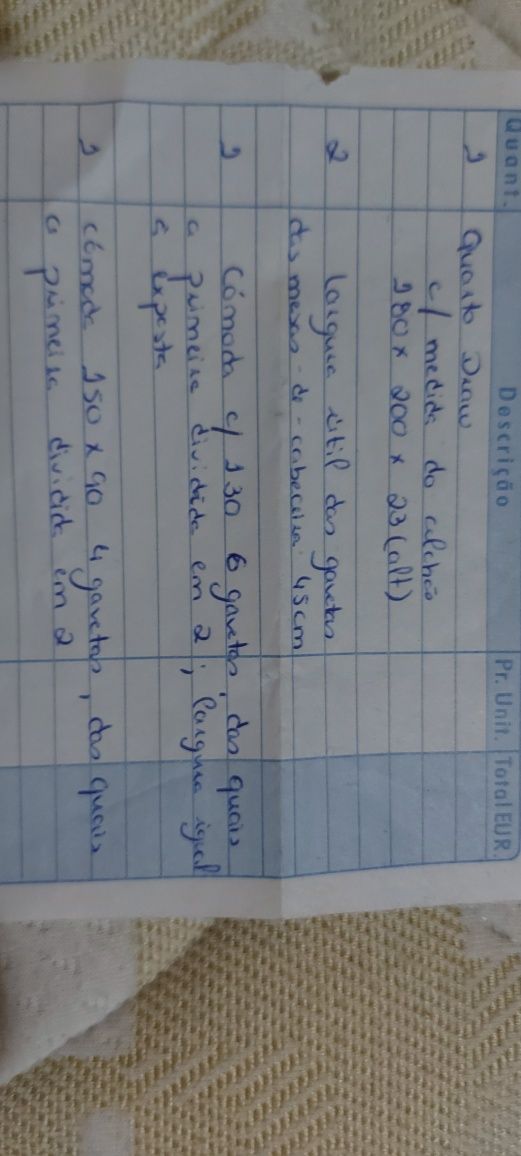 Quant. Descrição Pr. Unit. Total EUR.
1 Quarto Draw
c/ medida do colchão
180 x 200 x 23 (alt)
2 largura útil das gavetas
das mesas-de-cabeceira 45cm
1 Cómoda c/ 130 6 gavetas, das quais
a primeira dividida em 2; largura igual
à exposta
1 cómoda 150 x 90 4 gavetas, das quais
a primeira dividida em 2